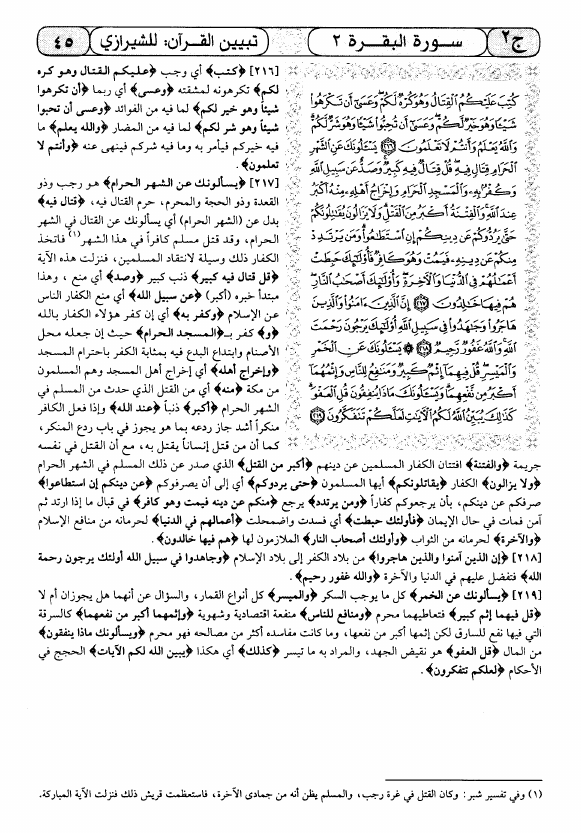 ج٢
سورة البقرة ٢
تبيين القرآن: للشيرازي
٤٥
كُتِبَ عَلَيْكُمُ الْقِتَالُ وَهُوَ كُرْهٌ لَكُمْ وَعَسَى أَنْ تَكْرَهُوا
شَيْئًا وَهُوَ خَيْرٌ لَكُمْ وَعَسَى أَنْ تُحِبُّوا شَيْئًا وَهُوَ شَرٌّ لَكُمْ
وَاللَّهُ يَعْلَمُ وَأَنْتُمْ لَا تَعْلَمُونَ ٢١٦ يَسْأَلُونَكَ عَنِ الشَّهْرِ
الْحَرَامِ قِتَالٍ فِيهِ قُلْ قِتَالٌ فِيهِ كَبِيرٌ وَصَدٌّ عَنْ سَبِيلِ اللَّهِ
وَكُفْرٌ بِهِ وَالْمَسْجِدِ الْحَرَامِ وَإِخْرَاجُ أَهْلِهِ مِنْهُ أَكْبَرُ
عِنْدَ اللَّهِ وَالْفِتْنَةُ أَكْبَرُ مِنَ الْقَتْلِ وَلَا يَزَالُونَ يُقَاتِلُونَكُمْ
حَتَّى يَرُدُّوكُمْ عَنْ دِينِكُمْ إِنِ اسْتَطَاعُوا وَمَنْ يَرْتَدِدْ
مِنْكُمْ عَنْ دِينِهِ فَيَمُتْ وَهُوَ كَافِرٌ فَأُولَئِكَ حَبِطَتْ
أَعْمَالُهُمْ فِي الدُّنْيَا وَالْآخِرَةِ وَأُولَئِكَ أَصْحَابُ النَّارِ
هُمْ فِيهَا خَالِدُونَ ٢١٧ إِنَّ الَّذِينَ آمَنُوا وَالَّذِينَ
هَاجَرُوا وَجَاهَدُوا فِي سَبِيلِ اللَّهِ أُولَئِكَ يَرْجُونَ رَحْمَتَ
اللَّهِ وَاللَّهُ غَفُورٌ رَحِيمٌ ٢١٨ يَسْأَلُونَكَ عَنِ الْخَمْرِ
وَالْمَيْسِرِ قُلْ فِيهِمَا إِثْمٌ كَبِيرٌ وَمَنَافِعُ لِلنَّاسِ وَإِثْمُهُمَا
أَكْبَرُ مِنْ نَفْعِهِمَا وَيَسْأَلُونَكَ مَاذَا يُنْفِقُونَ قُلِ الْعَفْوَ
كَذَلِكَ يُبَيِّنُ اللَّهُ لَكُمُ الْآيَاتِ لَعَلَّكُمْ تَتَفَكَّرُونَ ٢١٩
[٢١٦] ﴿كتب﴾ أي وجب ﴿عليكم القتال وهو كره
لكم﴾ تكرهونه لمشقته ﴿وعسى﴾ أي ربما ﴿أن تكرهوا
شيئاً وهو خير لكم﴾ لما فيه من الفوائد ﴿وعسى أن تحبوا
شيئاً وهو شر لكم﴾ لما فيه من المضار ﴿والله يعلم﴾ ما
فيه خيركم فيأمر به وما فيه شركم فينهى عنه ﴿وأنتم لا
تعلمون﴾.
[٢١٧] ﴿يسألونك عن الشهر الحرام﴾ هو رجب وذو
القعدة وذو الحجة والمحرم، حرم القتال فيه، ﴿قتال فيه﴾
بدل عن (الشهر الحرام) أي يسألونك عن القتال في الشهر
الحرام، وقد قتل مسلم كافراً في هذا الشهر(١) فاتخذ
الكفار ذلك وسيلة لانتقاد المسلمين، فنزلت هذه الآية
﴿قل قتال فيه كبير﴾ ذنب كبير ﴿وصد﴾ أي منع ، وهذا
مبتدأ خبره (أكبر) ﴿عن سبيل الله﴾ أي منع الكفار الناس
عن الإسلام ﴿وكفر به﴾ أي إن كفر هؤلاء الكفار بالله
﴿و﴾ كفر بـ﴿المسجد الحرام﴾ حيث إن جعله محل
الأصنام وابتداع البدع فيه بمثابة الكفر باحترام المسجد
﴿وإخراج أهله﴾ أي إخراج أهل المسجد وهم المسلمون
من مكة ﴿منه﴾ أي من القتل الذي حدث من المسلم في
الشهر الحرام ﴿أكبر﴾ ذنباً ﴿عند الله﴾ وإذا فعل الكافر
منكراً أشد جاز ردعه بما هو يجوز في باب ردع المنكر،
كما أن من قتل إنساناً يقتل به، مع أن القتل في نفسه
جريمة ﴿والفتنة﴾ افتتان الكفار المسلمين عن دينهم ﴿أكبر من القتل﴾ الذي صدر عن ذلك المسلم في الشهر الحرام
﴿ولا يزالون﴾ الكفار ﴿يقاتلونكم﴾ أيها المسلمون ﴿حتى يردوكم﴾ أي إلى أن يصرفوكم ﴿عن دينكم إن استطاعوا﴾
صرفكم عن دينكم، بأن يرجعوكم كفاراً ﴿ومن يرتدد﴾ يرجع ﴿منكم عن دينه فيمت وهو كافر﴾ في قبال ما إذا ارتد ثم
آمن فمات في حال الإيمان ﴿فأولئك حبطت﴾ أي فسدت واضمحلت ﴿أعمالهم في الدنيا﴾ لحرمانه من منافع الإسلام
﴿والآخرة﴾ لحرمانه من الثواب ﴿وأولئك أصحاب النار﴾ الملازمون لها ﴿هم فيها خالدون﴾.
[٢١٨] ﴿إن الذين آمنوا والذين هاجروا﴾ من بلاد الكفر إلى بلاد الإسلام ﴿وجاهدوا في سبيل الله أولئك يرجون رحمة
الله﴾ فتفضل عليهم في الدنيا والآخرة ﴿والله غفور رحيم﴾.
[٢١٩] ﴿يسألونك عن الخمر﴾ كل ما يوجب السكر ﴿والميسر﴾ كل أنواع القمار، والسؤال عن أنهما هل يجوزان أم لا
﴿قل فيهما إثم كبير﴾ فتعاطيهما محرم ﴿ومنافع للناس﴾ منفعة اقتصادية وشهوية ﴿وإثمهما أكبر من نفعهما﴾ كالسرقة
التي فيها نفع للسارق لكن إثمها أكبر من نفعها، وما كانت مفاسده أكثر من مصالحه فهو محرم ﴿ويسألونك ماذا ينفقون﴾
من المال ﴿قل العفو﴾ هو نقيض الجهد، والمراد به ما تيسر ﴿كذلك﴾ أي هكذا ﴿يبين الله لكم الآيات﴾ الحجج في
الأحكام ﴿لعلكم تتفكرون﴾.
(١) وفي تفسير شبر: وكان القتل في غرة رجب، والمسلم يظن أنه من جمادى الآخرة، فاستعظمت قريش ذلك فنزلت الآية المباركة.